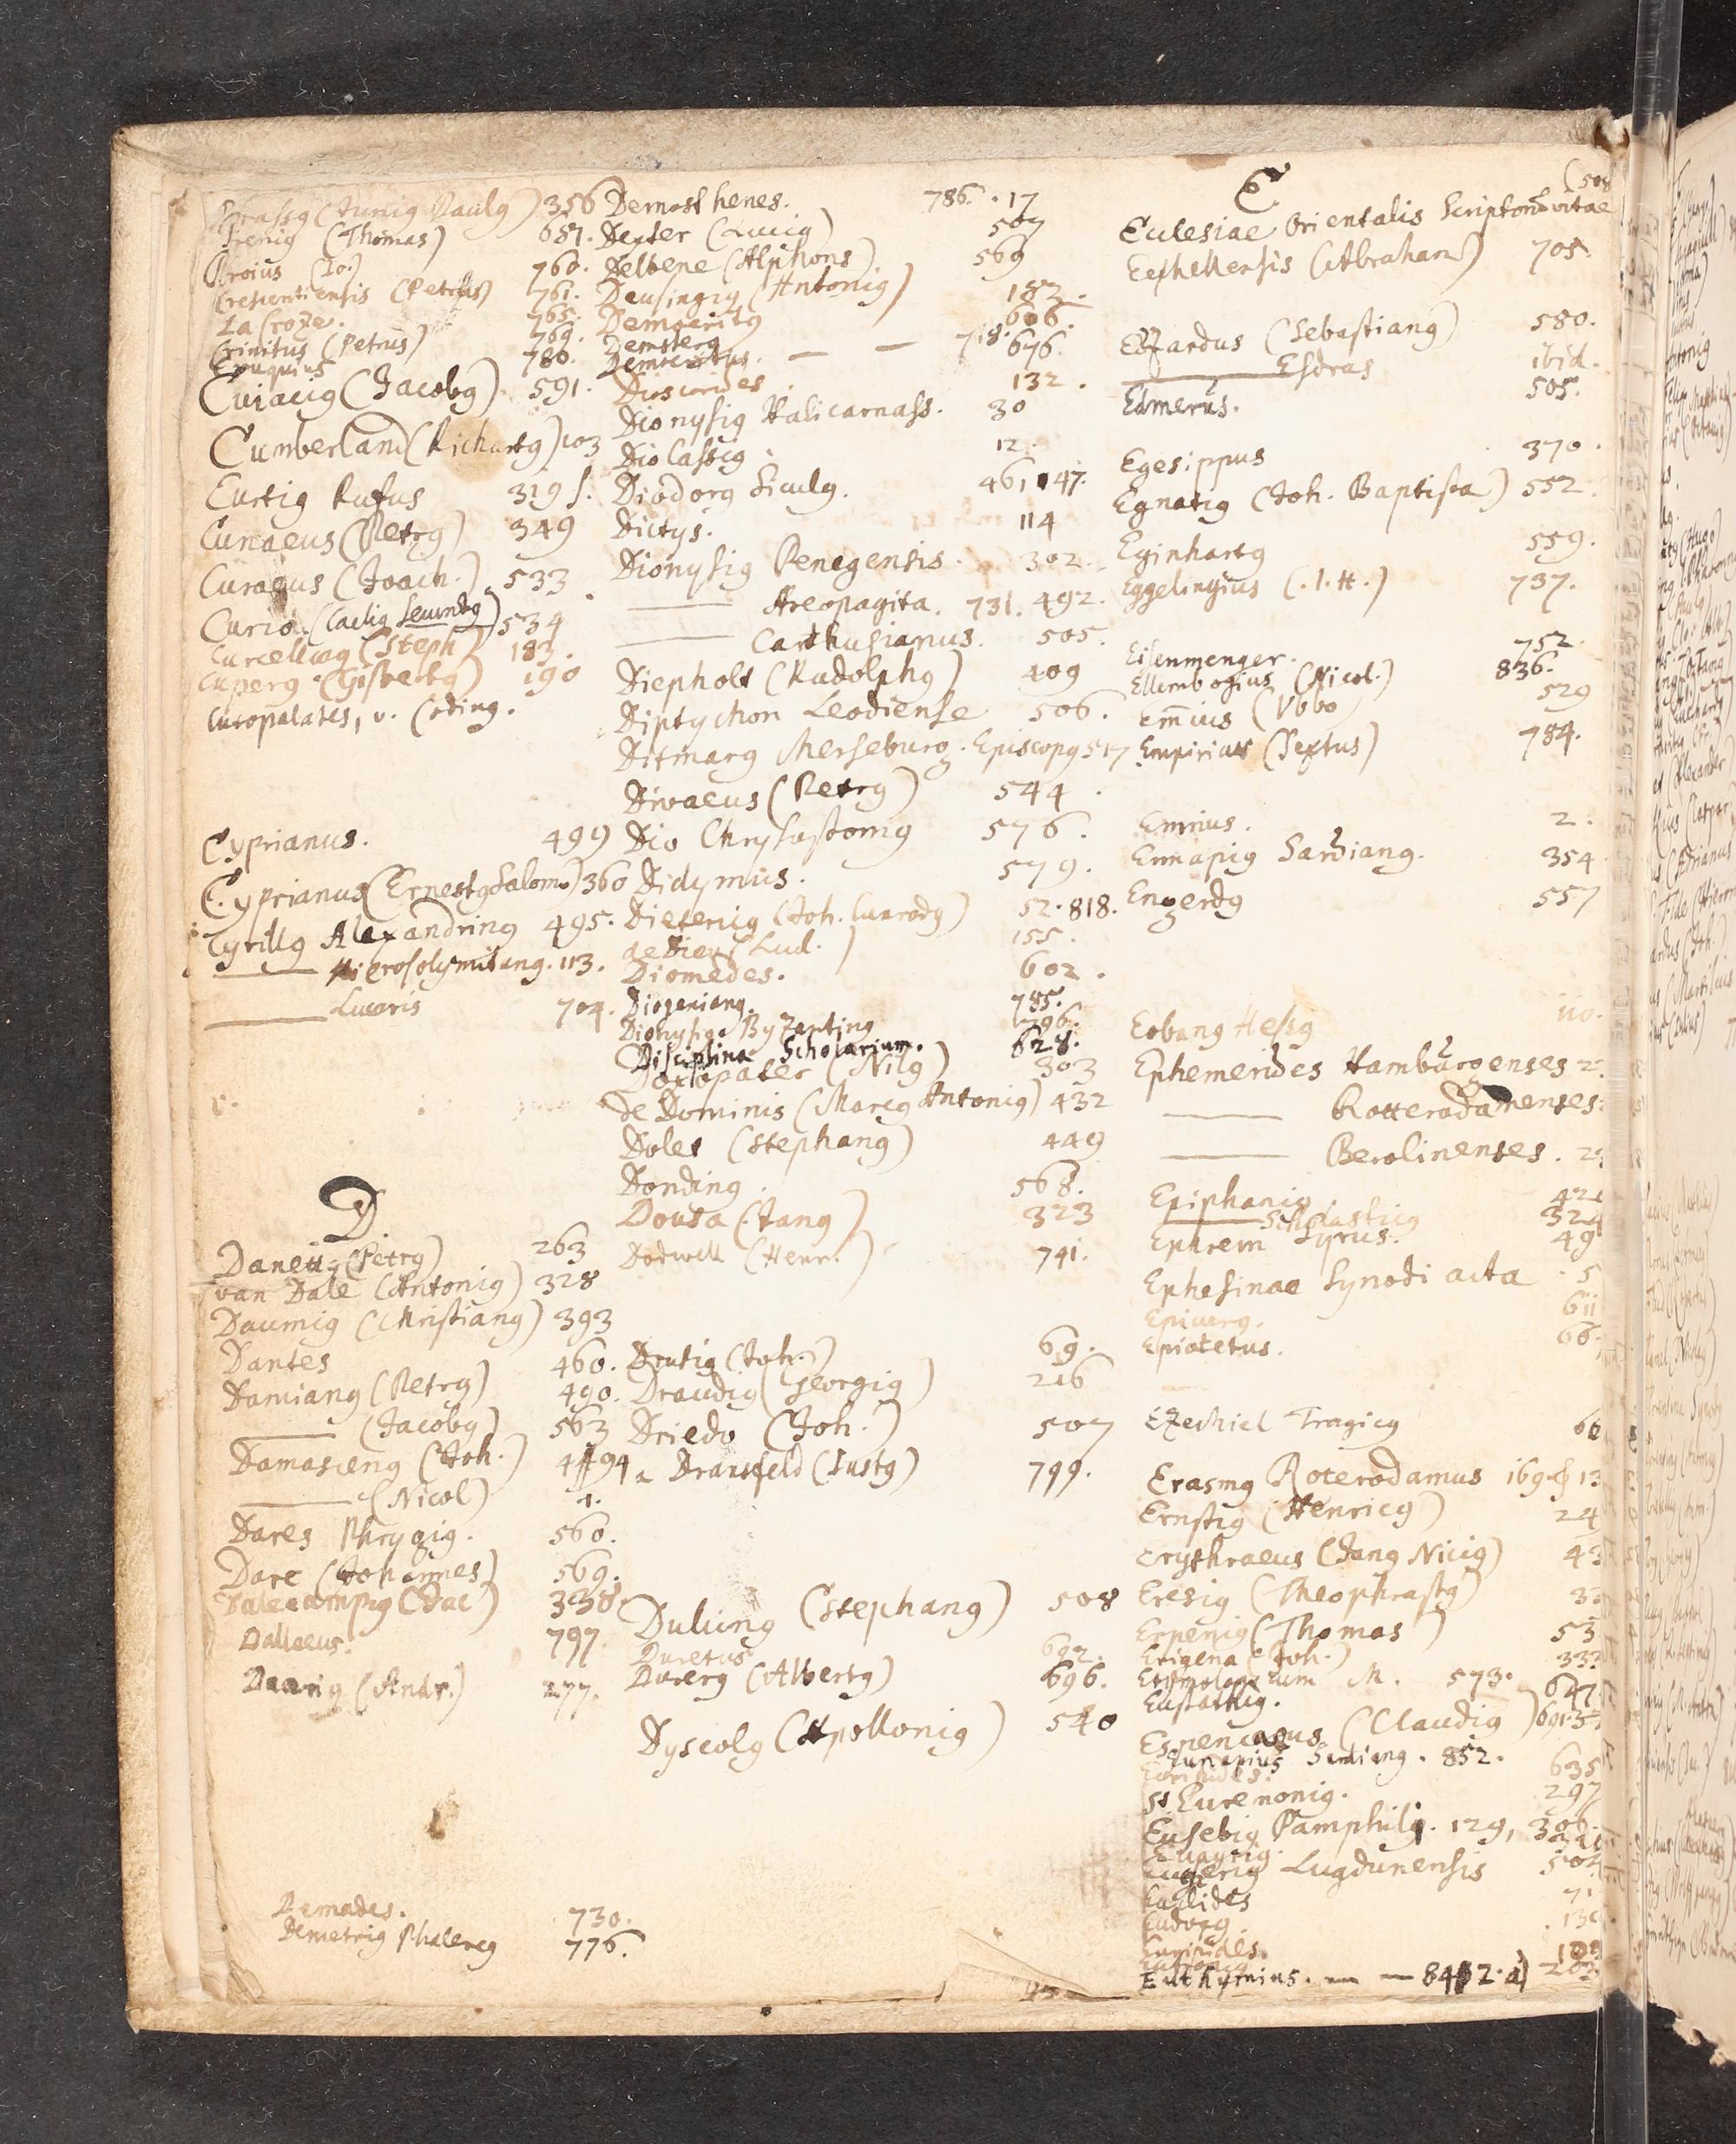 Crassg (Junig Paulg) 356
Crenig (Thomas) 687.
Croius (Io.) 760.
Crescentiensis (Petrus) 761.
La Croze. 765.
Crinitus (Petrus) 769.
Cruquius 780.
Cuiacig (Jacobg) 591.
Cumberland (Richartg) 103
Curtig Rufus 319 f.
Cunaeus (Petrg) 349
Curaeus (Joach.) 533
Curio. (Caelig Secundg) 534
Curcellaeg (Steph) 183.
Cuperg (Gisbertg) 190
Curopalates, v. Coding.
Cyprianus. 499
Cyprianus (Ernestg Salom.) 360
Cyrillg Alexandring 495.
——— Hierosolymitang. 113.
——— Lucaris 704.
D
Danetg (Petrg) 263
van Dale (Antonig) 328
Daumig (Christiang) 393
Dantes 460.
Damiang (Petrg) 490.
——— (Jacobg) 563
Damasceng (Joh.) 494
——— (Nicol) 1.
Dares Phrygig. 560.
Dare (Johannes) 569.
Dalecampg (Jac) 338.
Dallaeus. 797.
(Andr.) 277.
Demades. 730.
Demetrig Phalereg 776.
Demosthenes. 786. . 17
Dexter (Lucig) 507
Delbene (Alphons) 569
Deusingig (Antonig) 182.
Democritg 606.
718. 676.
Dioscorides. 132.
Dionysig Halicarnass. 30
Dio Cassig. 12.
Diodorg Siculg. 461 147.
Dictys. 114
Dionysig Periegensis. 302.
——— Areopagita. 731. 492.
——— Carthusianus. 505.
Diepholt (Rudolphg) 409
Diptychon Leodiense 506.
Ditmarg Merseburg. Episcopg 517
Divaeus (Petrg) 544
Dio Chrysostomg 576.
Didymus. 579.
Dieterig (Joh. Cunrodg) 52. 818.
de Dieu (Lud.) 155.
Diomedes. 602.
Diogeniang. 785.
Dionysig Byzanting 796.
Disciplina Scholarium. 628.
Doxopater (Nilg) 303
de Dominis (Marcg Antonig) 432
Dolet (Stephang) 449
Donding. 568.
Dousa (Jang) 323
Dodwell (Henr.) 741.
Drusig (Joh.) 69.
Draudig (Georgig) 216
Driedo (Joh.) 507
Dransfeld (Iustg) 799.
Dulcing (Stephang) 508
Duretus 692.
Durerg (Albertg) 696.
Dyscolg (Apollonig) 540
E
(508
Ecclesiae Orientalis Scriptorū vitae
Ecchellensis (Abraham) 705.
Edzardus (Sebastiang) 580.
——— Esdras ibid.
Edmerus. 505.
Egesippus 370.
Egnatig (Joh. Baptista) 552.
Eginhartg 559.
Eggelingius (. I. H.) 737.
Eisenmenger. 752.
Ellembogius (Nicol.) 836.
Em̄ius (Vbbo 529
Empiricus (Sextus) 784.
Ennius. 2.
Ennapig Sardiang. 354
Engerdg 557
Eobang Hessg 110.
Ephemerides Hamburgenses
——— Rotterodamenses
——— Berolinenses.
Epiphanig
——— Scholasticg 324
Ephrem Syrus. 49
Ephesinae Synodi acta . 5
Epicurg. 611
Epictetus. 66.
Ezechiel Tragicg 66
Erasmg Roterodamus 169. & 13
Ernstig (Henricg) 24
Erythraeus (Jang Nicig) 43
Eresig (Theophrastg) 33
Erpenig (Thomas) 53
Erigena (Joh.) 333
Etymologicum M. 573.
Eustathig. 647.
Espencaeus (Claudig) 691.
Eunapius Sardiang. 852.
Euripides. 635
St Euremonig. 297
Eusebig Pamphilg. 129, 306.
Evagrig.
Eucherig Lugdunensis 504
Euclides 71
Eudoxg. 130
Euripides.
Euthymius. — — 842. a)